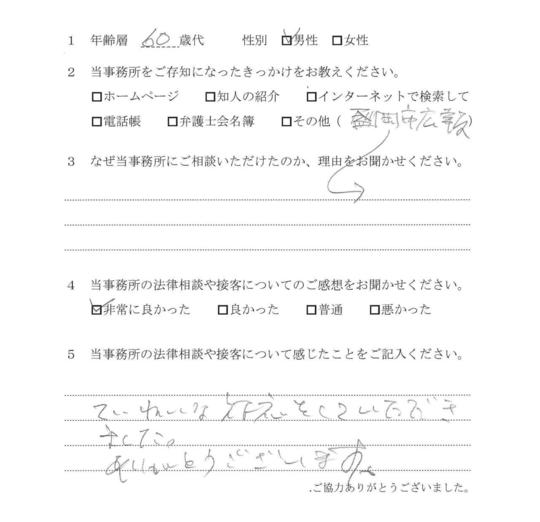 1 年齢層 60 歳代 性別 ☑男性 □女性
2 当事務所をご存知になったきっかけをお教えください。
□ホームページ □知人の紹介 □インターネットで検索して
□電話帳 □弁護士会名簿 □その他(盛岡市広報)
3 なぜ当事務所にご相談いただけたのか、理由をお聞かせください。
4 当事務所の法律相談や接客についてのご感想をお聞かせください。
☑非常に良かった □良かった □普通 □悪かった
5 当事務所の法律相談や接客について感じたことをご記入ください。
ていねいな対応をしていただき
ました。
ありがとうございます。
.ご協力ありがとうございました。